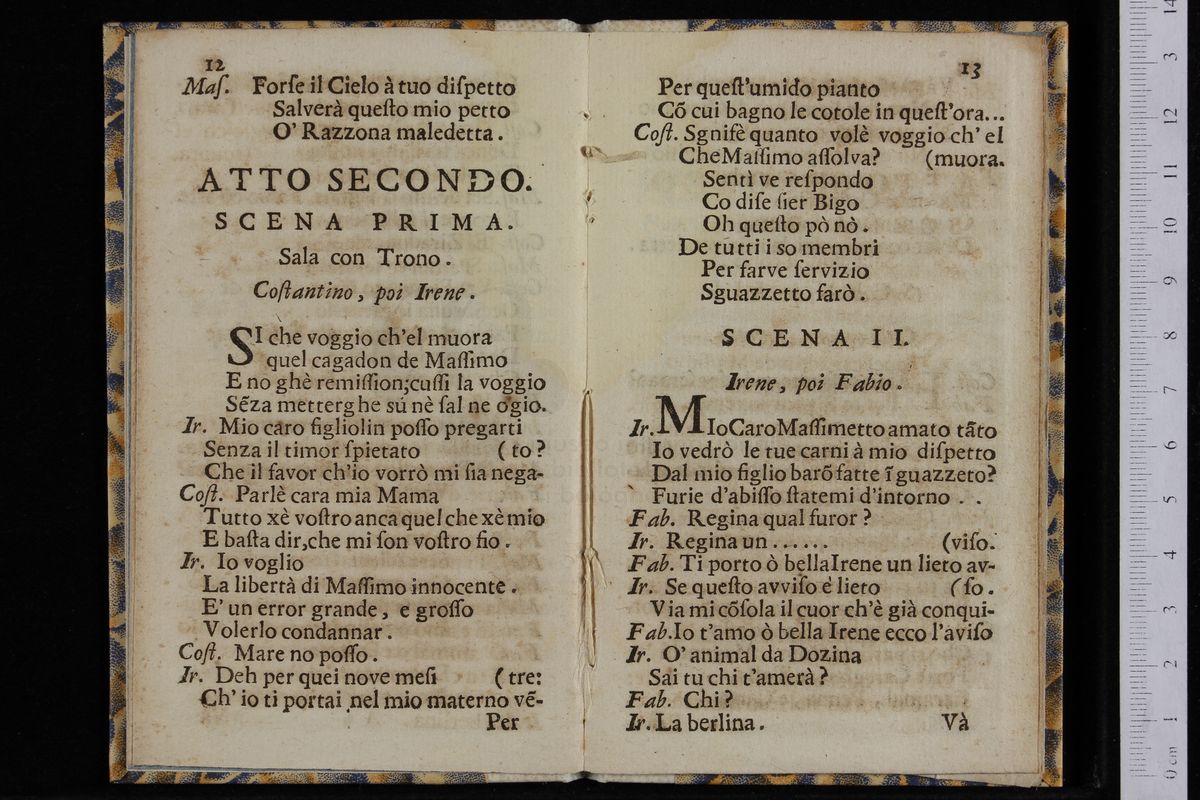 12
Maſ. Forſe il Cielo à tuo diſpetto
Salverà queſto mio petto
O' Razzona maledetta.
ATTO SECONDO.
SCENA PRIMA.
Sala con Trono.
Coſtantino, poi Irene.
SI che voggio ch'el muora
quel cagadon de Maſſimo
E no ghè remiſſion;cuſſi la voggio
Sēza metterghe sú nè ſal ne ogio.
Ir. Mio caro figliolin poſſo pregarti
Senza il timor ſpietato (to?
Che il favor ch'io vorrò mi ſia nega-
Coſt. Parlè cara mia Mama
Tutto xè voſtro anca quel che xè mio
E baſta dir,che mi ſon voſtro fio.
Ir. Io voglio
La libertà di Maſſimo innocente.
E' un error grande, e groſſo
Volerlo condannar.
Coſt. Mare no poſſo.
Ir. Deh per quei nove meſi (tre:
Ch' io ti portai nel mio materno vē-
Per
13
Per queſt'umido pianto
Cõ cui bagno le cotole in queſt'ora...
Coſt. Sgnifè quanto volè voggio ch' el
Che Maſſimo aſſolva? (muora.
Sentì ve reſpondo
Co diſe ſier Bigo
Oh queſto pò nò.
De tutti i so membri
Per farve ſervizio
Sguazzetto farò.
SCENA II.
Irene, poi Fabio.
Ir. MIo Caro Maſſimetto amato tãto
Io vedrò le tue carni à mio diſpetto
Dal mio figlio barõ fatte ĩ guazzeto?
Furie d'abiſſo ſtatemi d'intorno . .
Fab. Regina qual furor?
Ir. Regina un ...... (viſo.
Fab. Ti porto ò bella Irene un lieto av-
Ir. Se queſto avviſo è lieto (ſo.
Via mi cõſola il cuor ch'è già conqui-
Fab. Io t'amo ò bella Irene ecco l'aviſo
Ir. O' animal da Dozina
Sai tu chi t'amerà?
Fab. Chi?
Ir. La berlina. Và